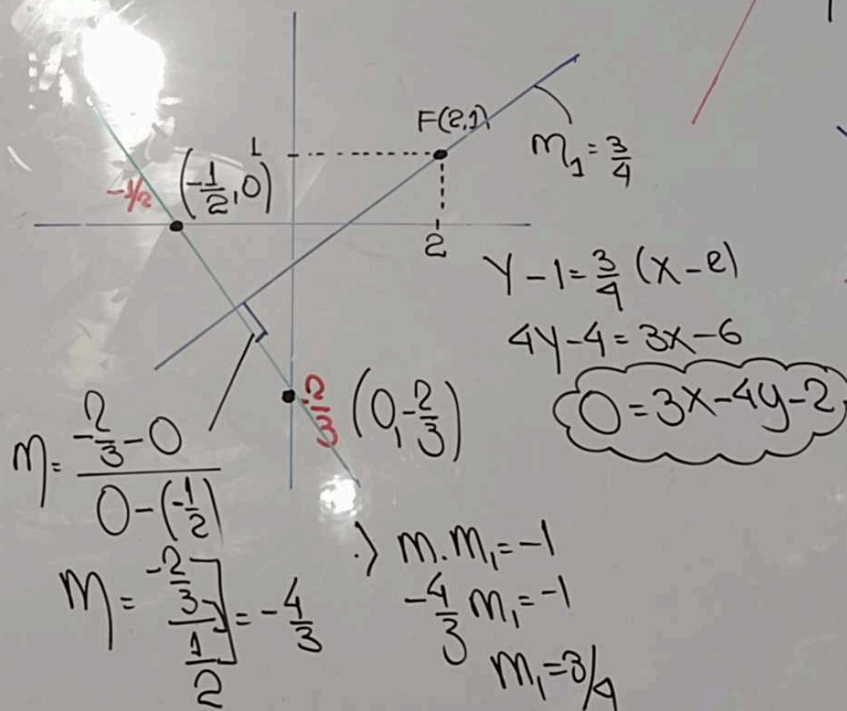 F(2,1)
1
m₁ = 3/4
(-1/2, 0)
-1/2
2
y - 1 = 3/4 (x - 2)
4y - 4 = 3x - 6
0 = 3x - 4y - 2
-2/3
(0, -2/3)
m = (-2/3 - 0)/(0 - (-1/2))
m = (-2/3)/(1/2) = -4/3
∴) m.m₁ = -1
-4/3 m₁ = -1
m₁ = 3/4